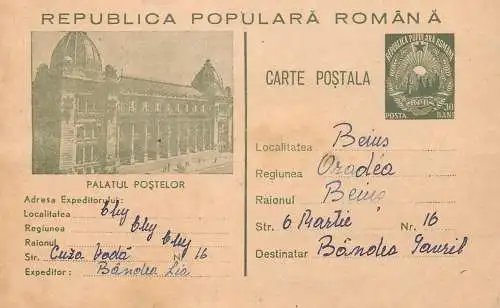 REPUBLICA POPULARĂ ROMÂNĂ
REPUBLICA POPULARA ROMANA
RPR
POSTA 30 BANI
CARTE POȘTALA
PALATUL POȘTELOR
Adresa Expeditorului:
Localitatea Cluj
Regiunea Cluj
Raionul Cluj
Str. Cuza Vodă N 16
Expeditor: Bândea Lia
Localitatea Beiuș
Regiunea Oradea
Raionul Beiuș
Str. 6 Martie Nr. 16
Destinatar Bândea Gavril